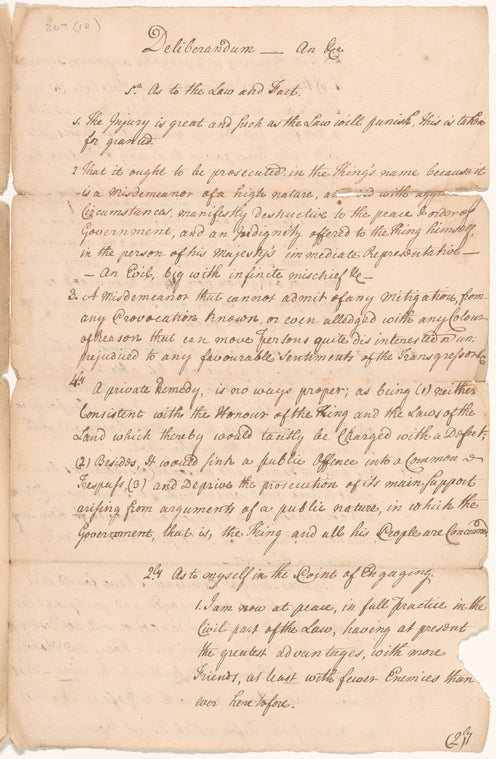 203 (10)
Deliberandum — An &ca
1st As to the Law and Fact.
1. The Injury is great and such as the Law will punish, this is taken
for granted.
2 That it ought to be prosecuted in the King's name because it
is a Misdemeanor of a high nature, with
Circumstances, manifestly destructive to the peace & order of
Government, and an indignity offered to the King himself,
in the person of his Majesty's immediate Representative —
— An Evil, big with infinite mischief &c —
3. A Misdemeanor that cannot admit of any Mitigation, from
any Provocation known, or even alledged with any Colour
of Reason that can move Persons quite disinterested or un:
prejudiced to any favourable Sentiments of the Transgressors
4ly
A private Remedy, is no ways proper; as being (1) neither
Consistent with the Honour of the King and the Laws of the
Land which thereby would tacitly be Charged with a Defect;
(2) Besides, It would sink a public Offence into a Common
Trespass (3) and Deprive the prosecution of its main Support
arising from arguments of a public nature, in which the
Government, that is, the King and all his People are Concerned
2ly As to myself in the Point of Engaging.
1. I am now at peace, in full Practice in the
Civil part of the Law, having at present
the greatest advantages, with more
Friends, at least with fewer Enemies than
ever heretofore.
(2ly